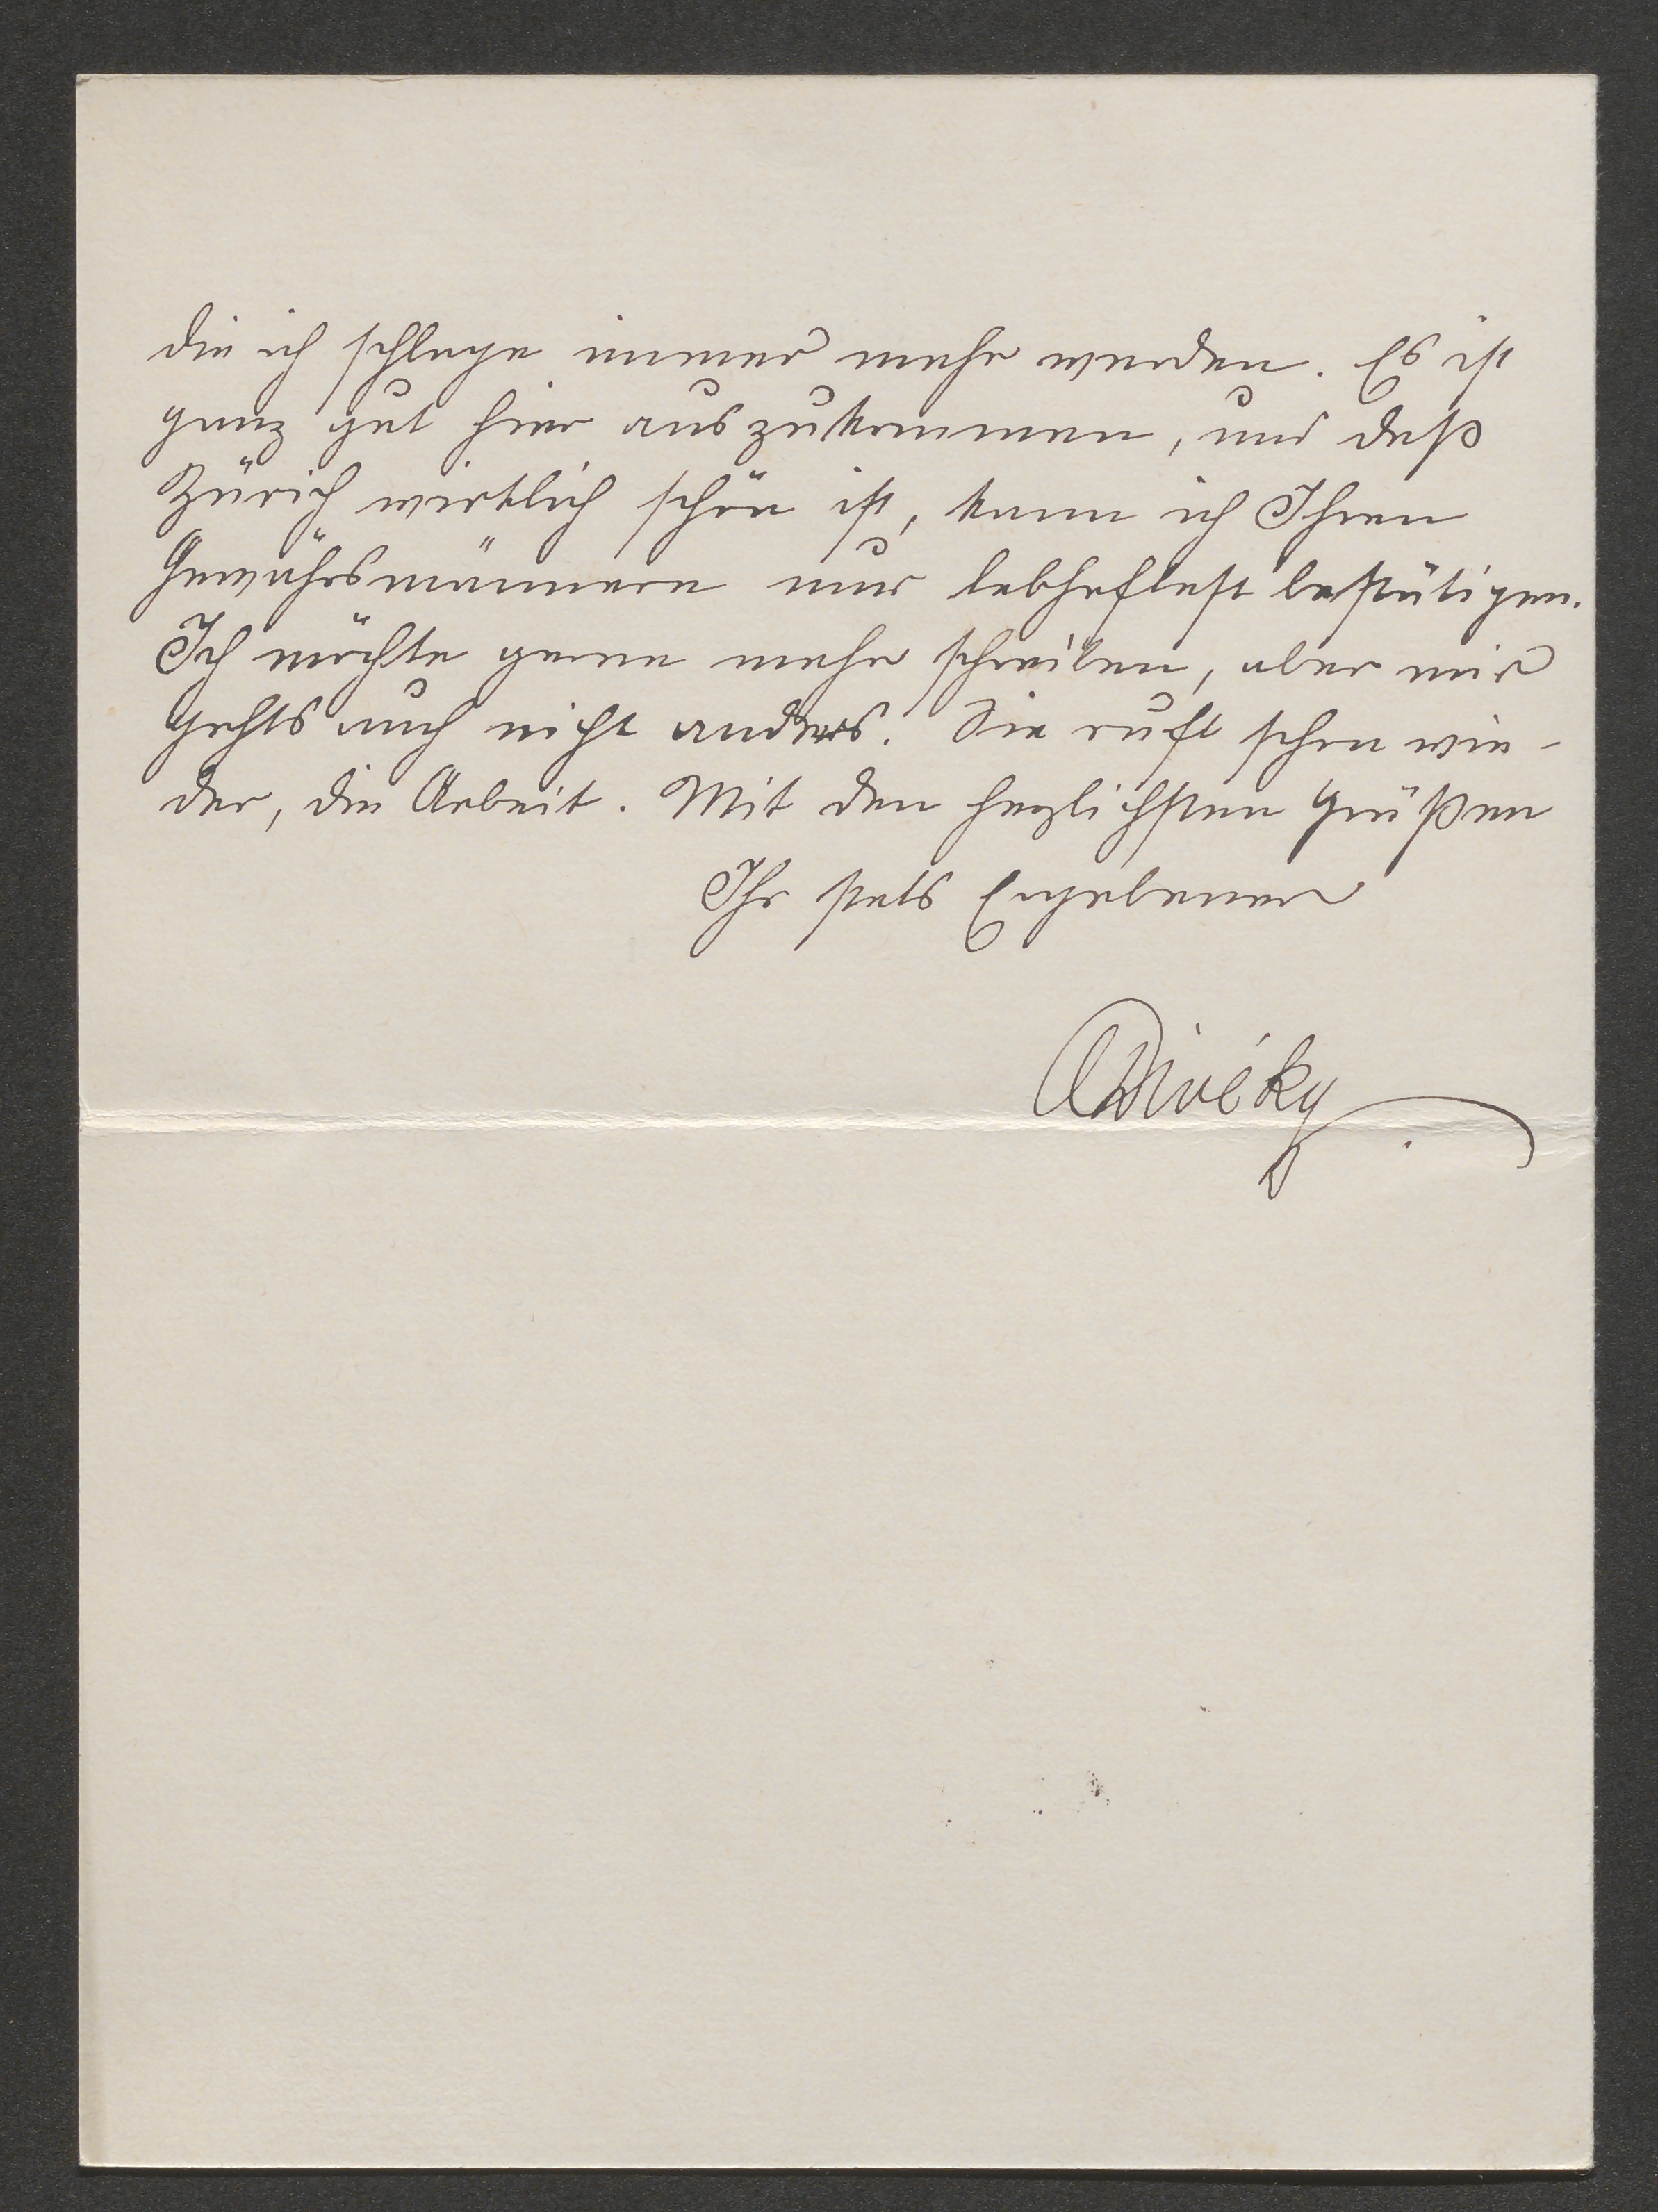 die ich schlage immer mehr werden. Es ist
ganz gut hier auszukommen, und daß
Zürich wirklich schön ist, kann ich Ihren
Gewährsmännern nur lebhaftest bestätigen.
Ich möchte gerne mehr schreiben, aber mir
gehts auch nicht anders. Sie ruft schon wie-
der, die Arbeit. Mit den herzlichsten Grüßen
Ihr stets Ergebener
ADivéky